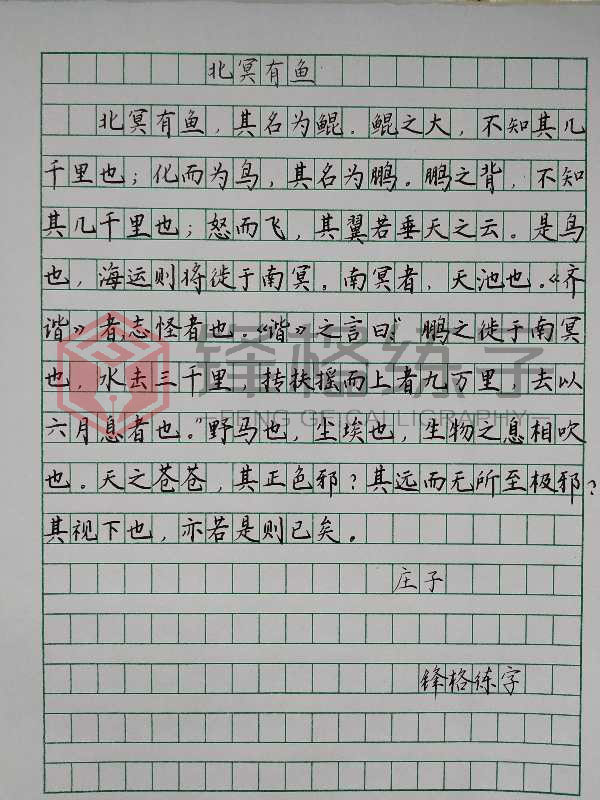 北冥有鱼
北冥有鱼，其名为鲲。鲲之大，不知其几
千里也；化而为鸟，其名为鹏。鹏之背，不知
其几千里也；怒而飞，其翼若垂天之云。是鸟
也，海运则将徙于南冥。南冥者，天池也。《齐
谐》者，志怪者也。《谐》之言曰：“鹏之徙于南冥
也，水击三千里，抟扶摇而上者九万里，去以
六月息者也。”野马也，尘埃也，生物之息相吹
也。天之苍苍，其正色邪？其远而无所至极邪？
其视下也，亦若是则已矣。
庄子
锋格练字
锋格练字
FENG GE CALLIGRAPHY